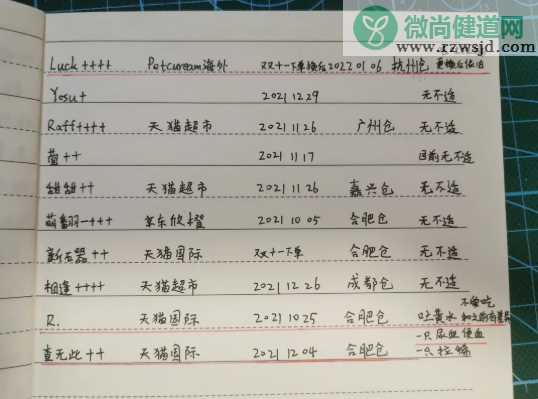 微尚健道网
www.rzwsjd.com
Luck++++ Petcuream海外 双十一下单换后20220106 杭州仓 更换后依旧
Yosu+ 20211229 无不适
Raff++++ 天猫超市 20211126 广州仓 无不适
萤++ 20211117 目前无不适
甜甜++ 天猫超市 20211126 嘉兴仓 无不适
萌翻翻一+++ 京东欣橙 20211005 合肥仓 无不适
新石器++ 天猫国际 双十一下单 合肥仓 无不适
相逢++++ 天猫超市 20211226 成都仓 无不适
不爱吃
R. 天猫国际 20211025 合肥仓 吐黄水 和之前有差异
一只尿血便血
查无此++ 天猫国际 20211204 合肥仓 一只拉稀